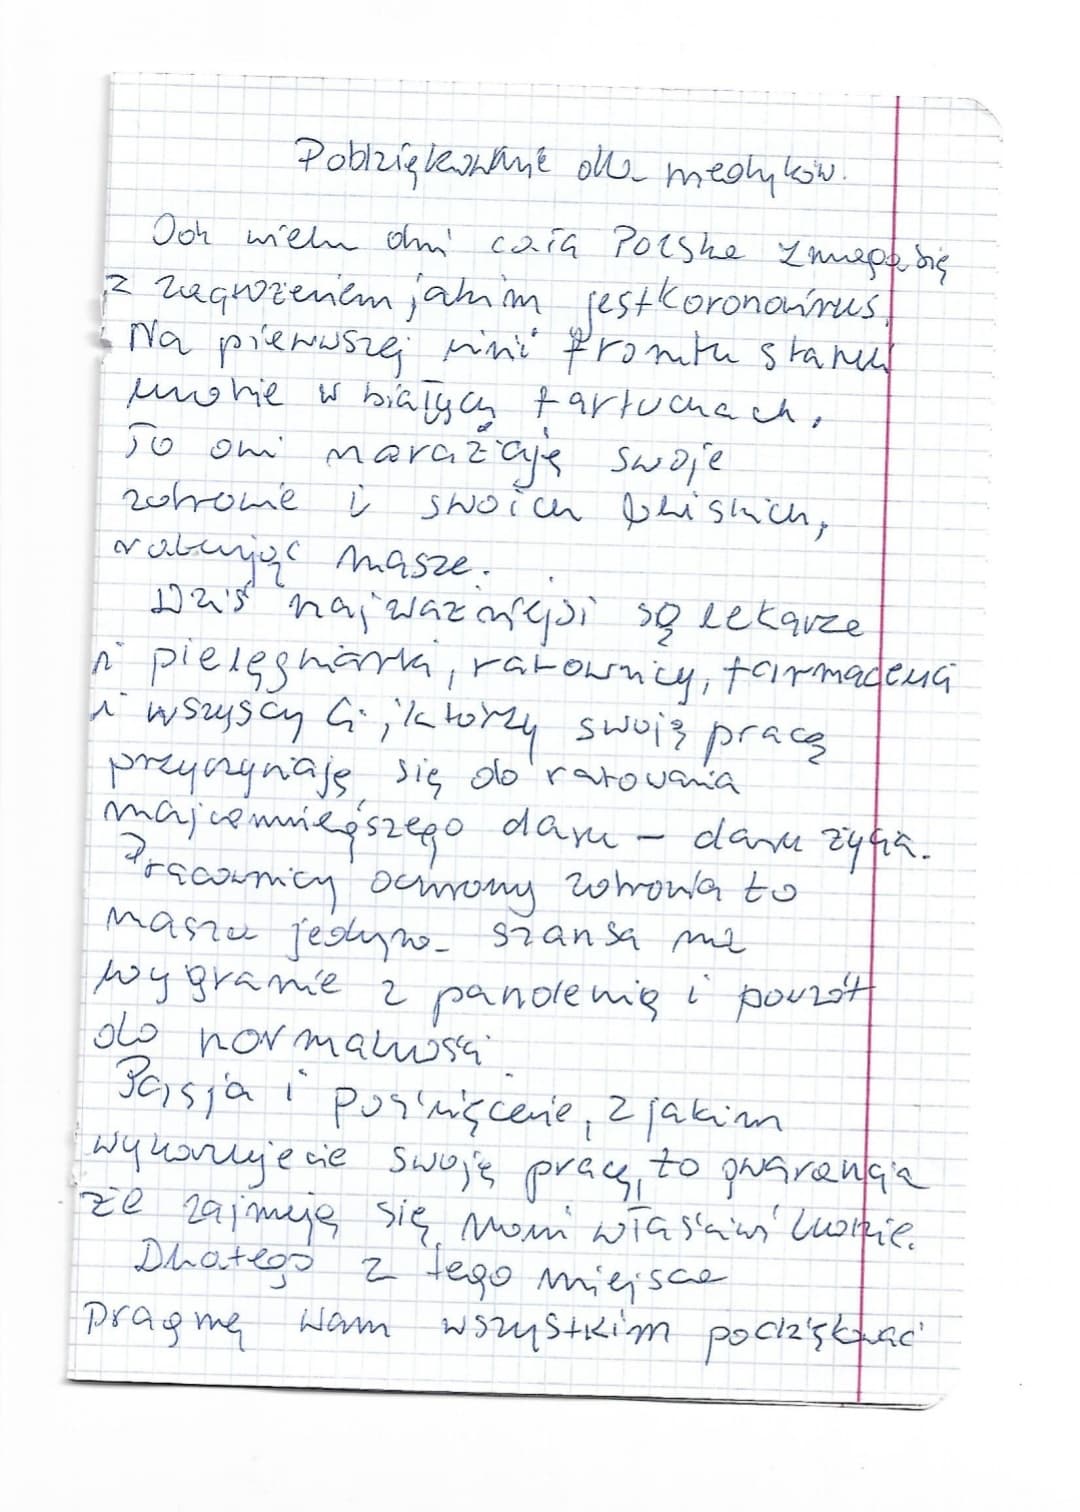 Podziękowanie dla medyków.
Od wielu dni cała Polska zmaga się
z zagrożeniem jakim jest koronawirus.
Na pierwszej linii frontu stanęli
ludzie w białych fartuchach.
To oni narażają swoje
zdrowie i swoich bliskich,
ratując nasze.
Dziś najważniejsi są lekarze
i pielęgniarki, ratownicy, farmaceuci
i wszyscy Ci, którzy swoją pracą
przyczyniają się do ratowania
najcenniejszego daru – daru życia.
Pracownicy ochrony zdrowia to
nasza jedyna szansa na
wygranie z pandemią i powrót
do normalności.
Pasja i poświęcenie, z jakim
wykonujecie swoją pracę, to gwarancja
że zajmują się nami właściwi ludzie.
Dlatego z tego miejsca
pragnę Wam wszystkim podziękować